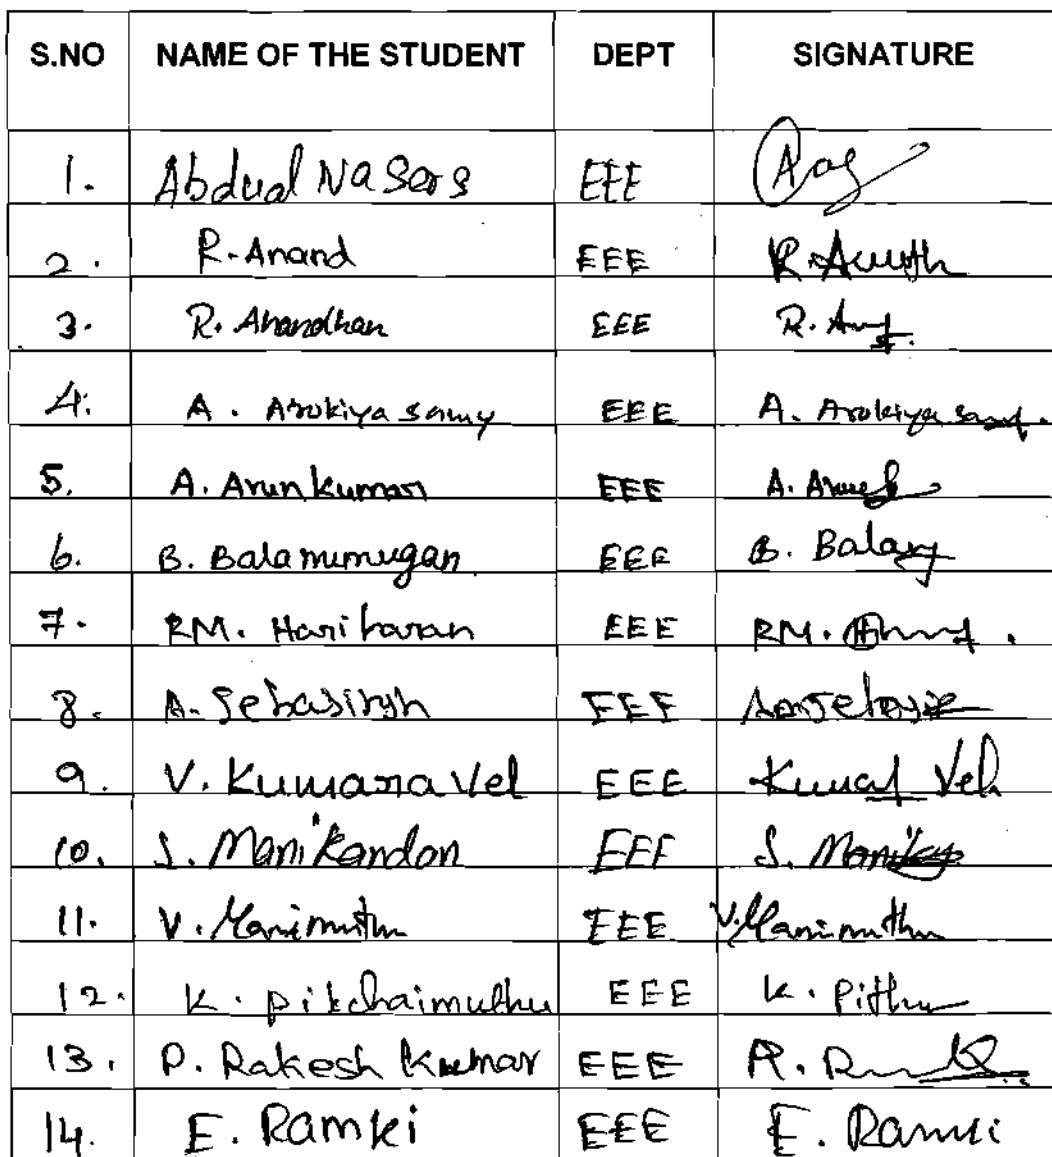 S.NO NAME OF THE STUDENT DEPT SIGNATURE
1. Abdual Nasers EEE
2. R. Anand EEE
3. R. Anandhan EEE R.
4. A. Arokiya samy EEE A. Arokiya samy.
5. A. Arunkumar EEE A.
6. B. Balamurugan EEE B.
7. RM. Hariharan EEE RM.
8. A. EEE
9. V. Kumaravel EEE Kumar Vel
10. S. Manikandan EEE S.
11. V. Manimuthu EEE V. Manimuthu
12. K. pitchaimuthu EEE K. Pithu
13. P. Rakesh Kumar EEE
14. E. Ramki EEE E. Ramki